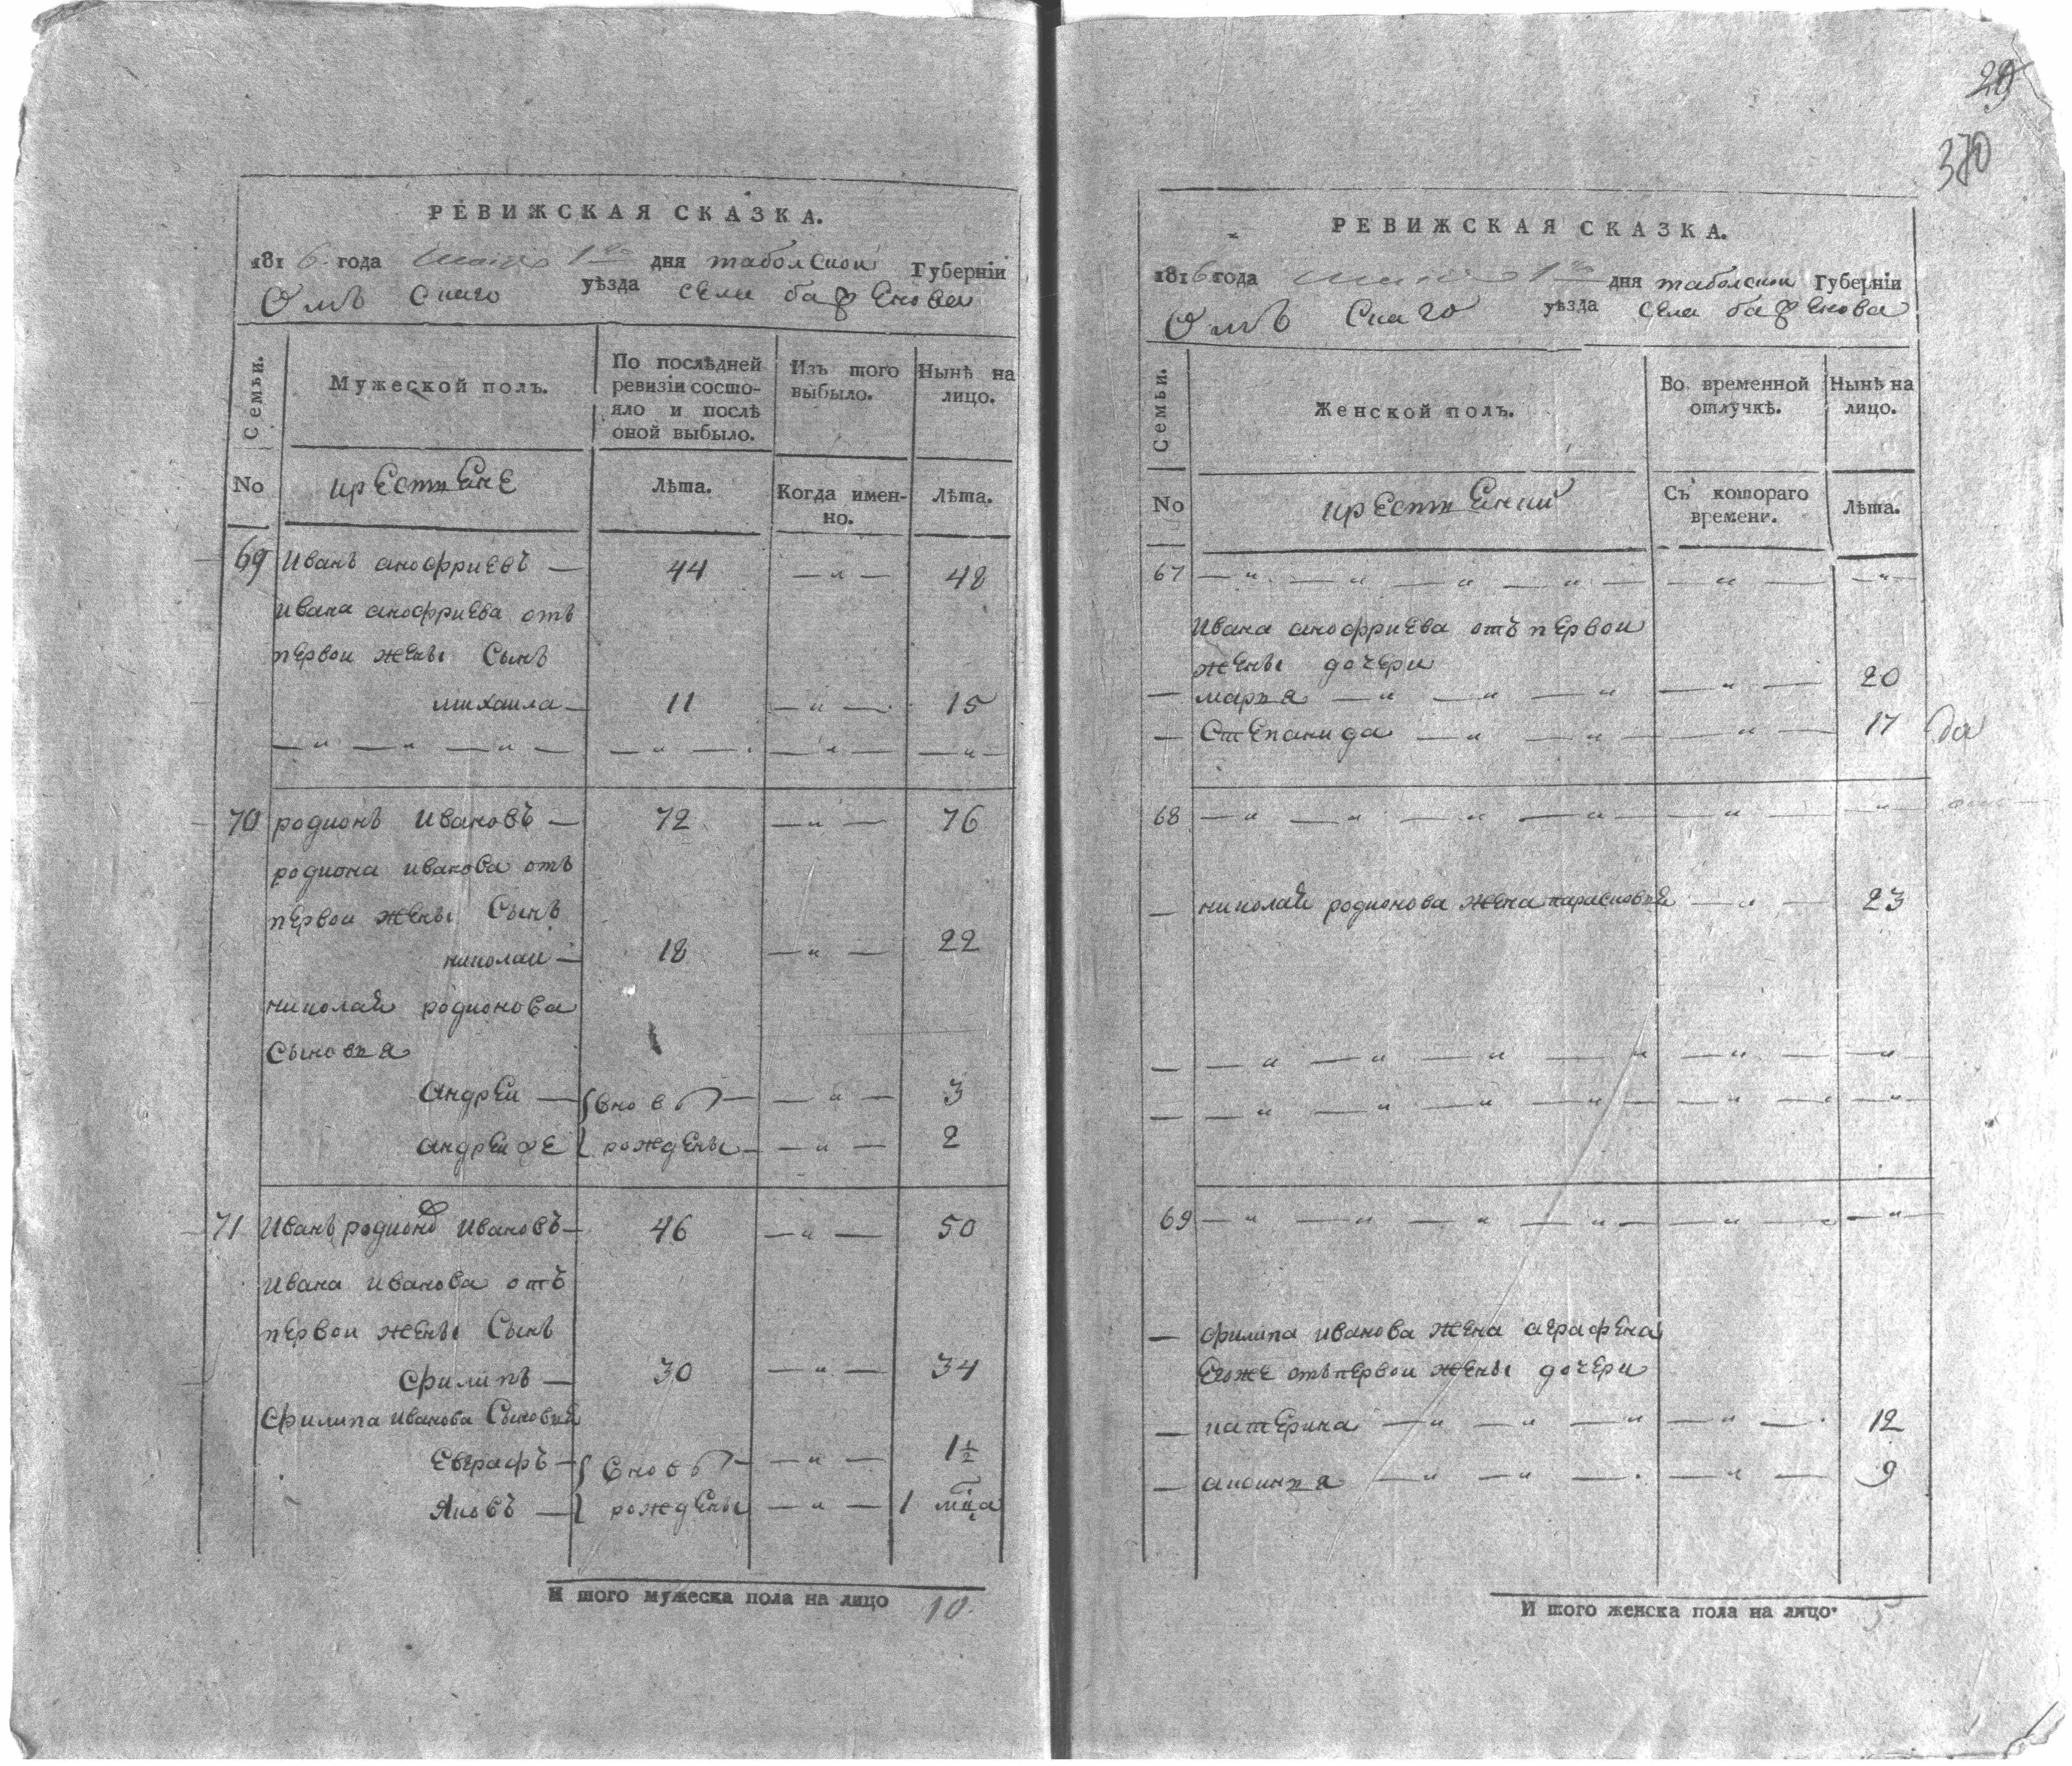 29
370
РЕВИЖСКАЯ СКАЗКА.
1816 года маия 1го дня таболской Губерніи
Омъ скаго уѣзда села бафенова
Семьи.
Мужеской полъ.
По послѣдней ревизіи состо-
яло и послѣ оной выбыло.
Изъ того выбыло.
Нынѣ на лицо.
No
крестьяне
Лѣта.
Когда имен-
но.
Лѣта.
69 Иванъ анофриевъ — 44 — " — 48
Ивана анофриева отъ
первои жены Сынъ
михаила — 11 — " — 15
— " — " — " — — " — — " — — " —
70 родионъ Ивановъ — 72 — " — 76
родиона иванова отъ
первои жены Сынъ
николаи — 18 — " — 22
николай родионова
Сыновья
Андреи — вновѣ — " — 3
андреи же рождены — " — 2
71 Иванъ родионъ Ивановъ — 46 — " — 50
Ивана Иванова отъ
первои жены Сынъ
Филипъ — 30 — " — 34
Филипа иванова Сыновья
Евграфъ — вновѣ — " — 1 1/2
Яковъ — рождены — " — 1 мца
И того мужеска пола на лицо 10.
РЕВИЖСКАЯ СКАЗКА.
1816 года маия 1го дня таболской Губерніи
Омъ скаго уѣзда села бафенова
Семьи.
Женской полъ.
Во временной отлучкѣ.
Нынѣ на лицо.
No
крестьянки
Съ котораго
времени.
Лѣта.
67 — " — " — " — " — — " — — " —
Ивана анофриева отъ первои
жены дочери
— марья — " — " — " — " — 20
— Степанида — " — " — " — 17
68 — " — " — " — " — — " — — " —
— николай родионова жена парасковья — " — 23
— — " — " — " — " — " — — "
— — " — " — " — " — " — — "
69 — " — " — " — " — — " — — " —
— филипа иванова жена аграфена
Егоже отъ первои жены дочери
— катерина — " — " — " — " — 12
— аксинья — " — " — . — " — 9
И того женска пола на лицо. 5